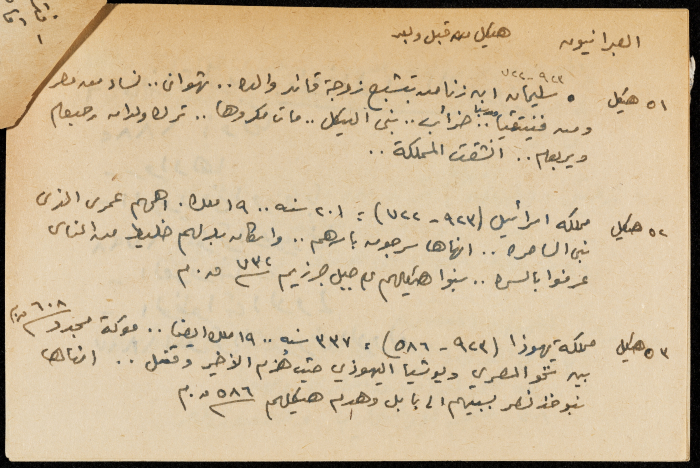 العبرانيون
هيكل من قبل وبعد
٥١ هيكل
٩٢٣-٧٢٢
• سليمان ابن زنا من بتشبع زوجة قائد والده .. تهواني .. نساء من مصر
ومن فينيقيا .. ضرائب .. بنى الهيكل .. مات مكروها .. ترك ولدان رحبعام
ويربعام .. انشقت المملكة ..
٥٢ هيكل
مملكة اسرائيل (٩٢٣ - ٧٢٢) = ٢٠١ سنه .. ١٩ ملك. اهمهم عمري الذي
بنى السامره .. انهاها سرجون بأسرهم .. واسكان بدلهم خليط من الناس
عرفوا بالسمره .. بنوا هيكلهم على جبل جرزيم ٧٣٢ ق.م
٥٣ هيكل
مملكة يهوذا (٩٢٣ - ٥٨٦) = ٣٣٧ سنه .. ١٩ ملك ايضا .. موقعة مجدو ٦٠٨ ق.م
بين نخو المصري ويوشيا اليهوذي حيث هُزم الأخير وقتل .. انهاها
نبوخذنصر بسبيهم الى بابل وهدم هيكلهم ٥٨٦ ق.م